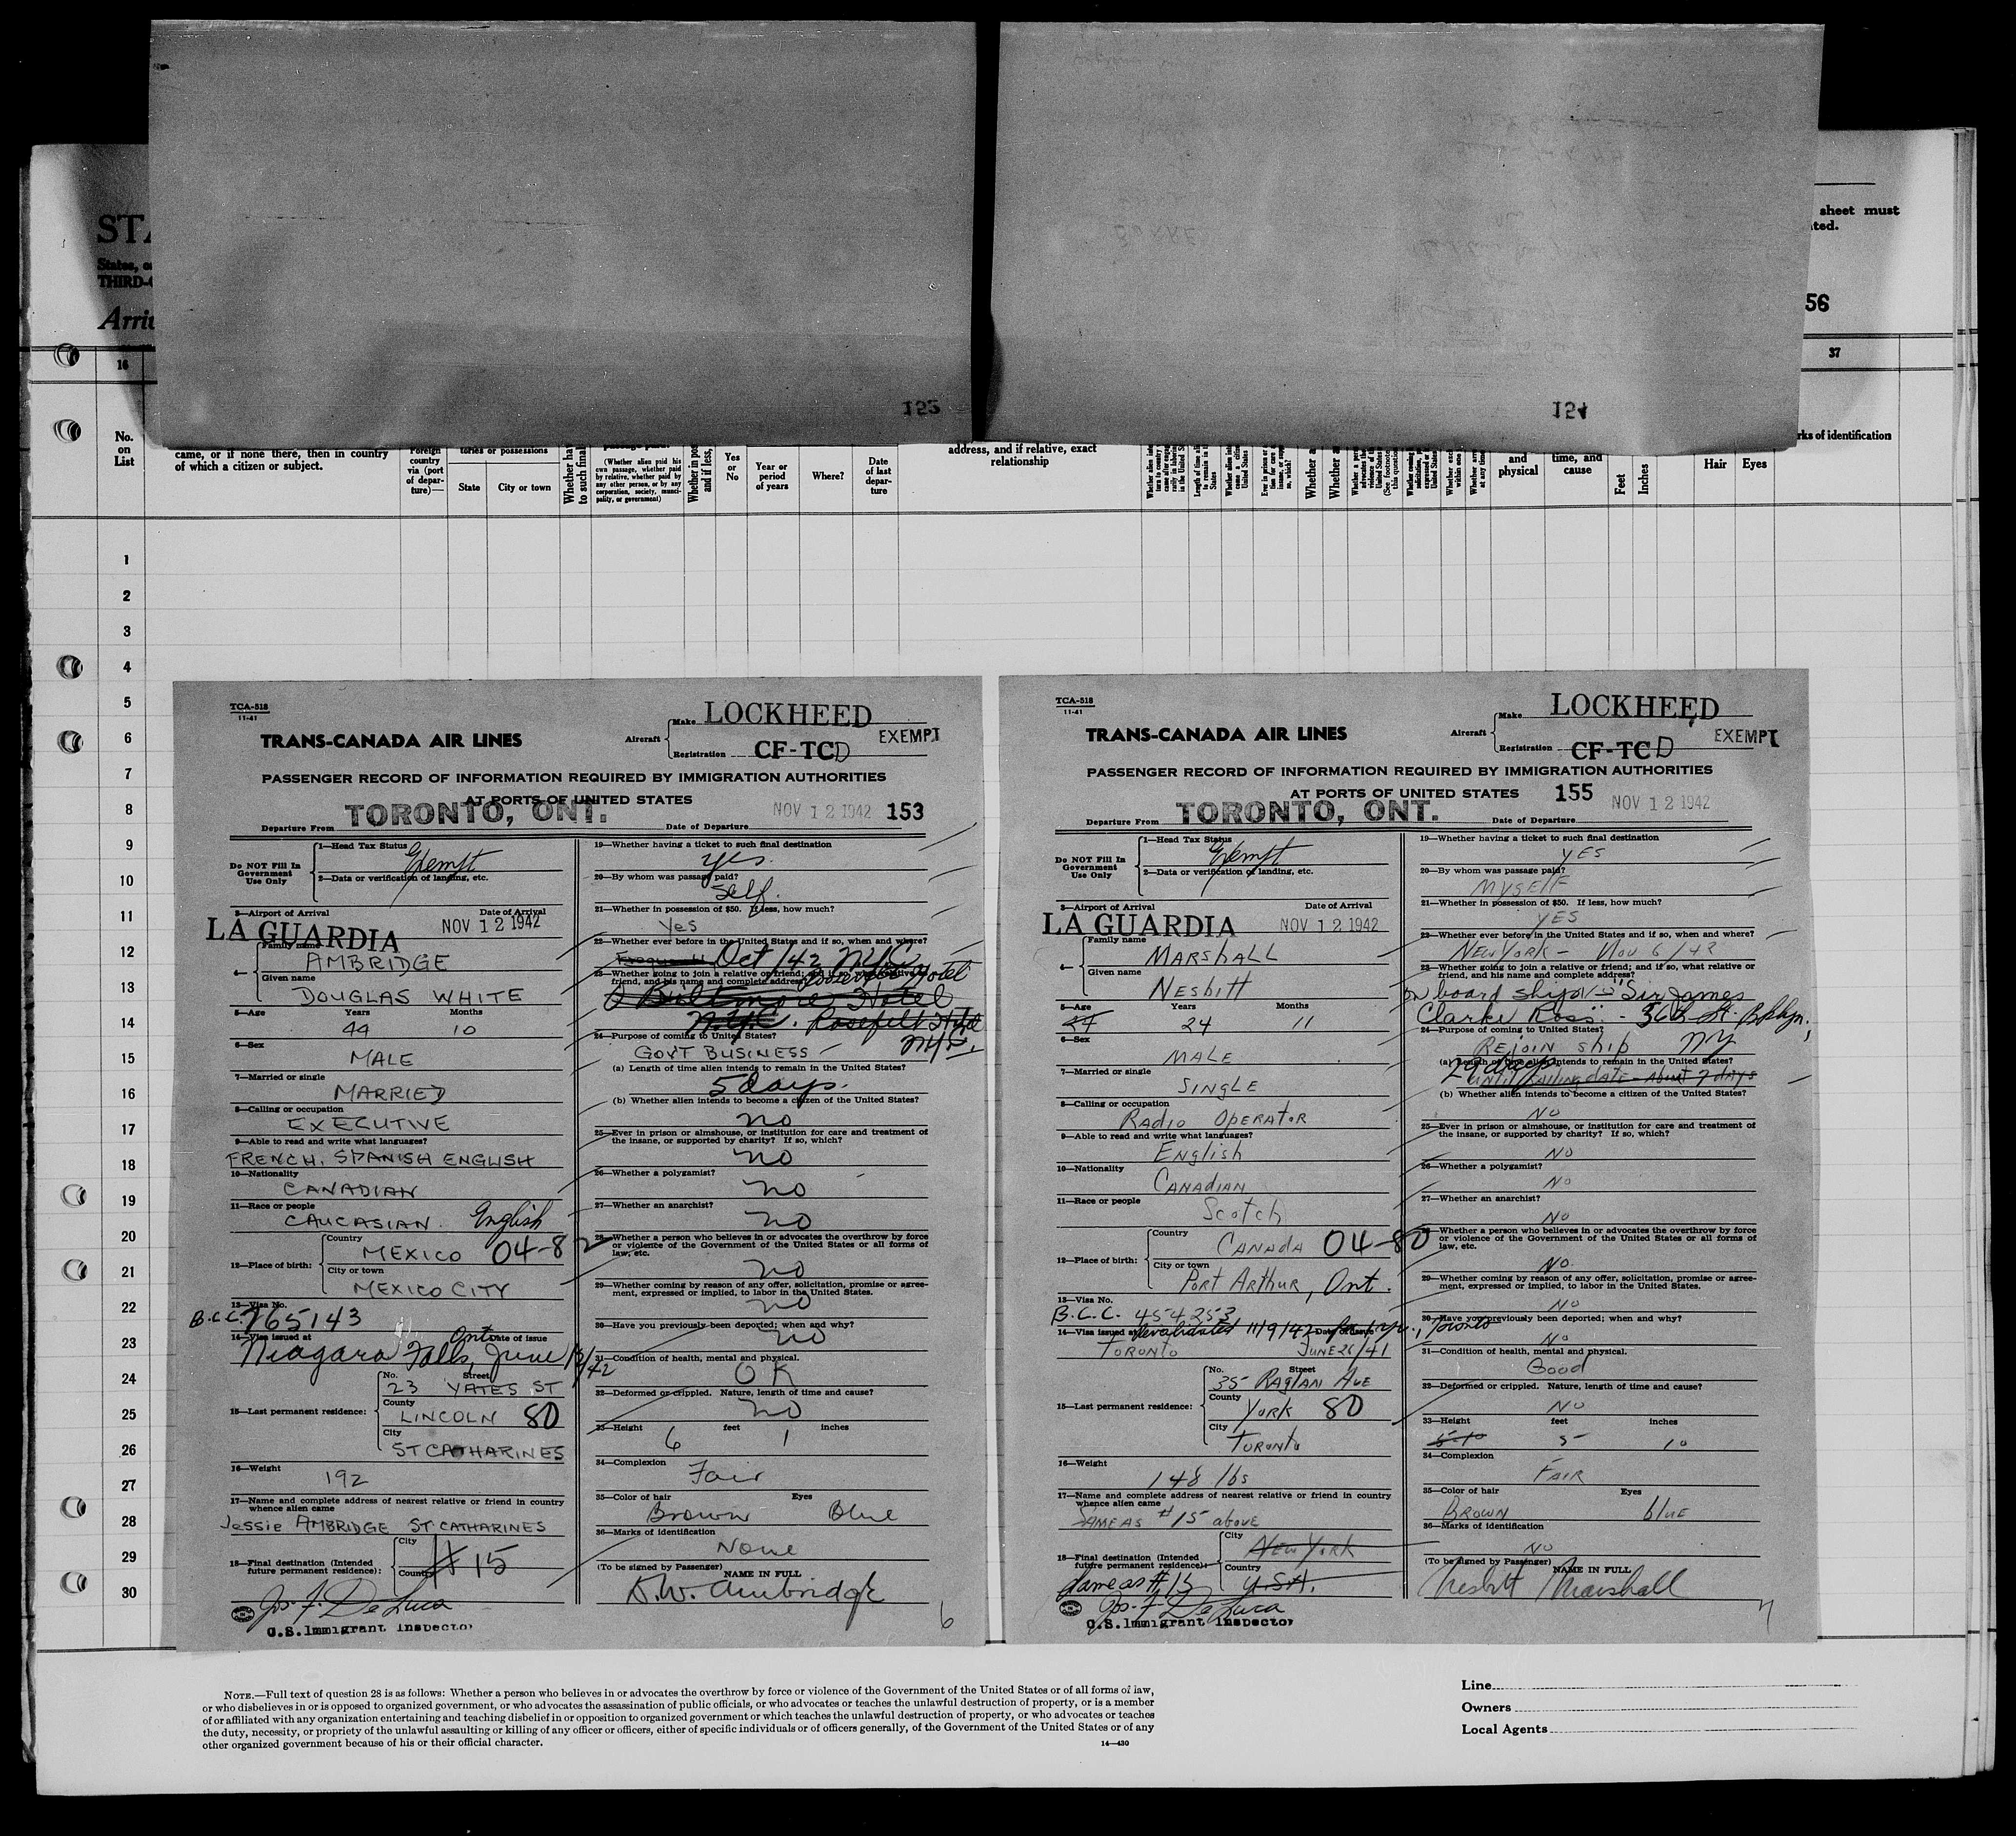 STA
States, o
THIRD-C
Arriv
sheet must
ated.
56
16
37
152
154
No.
on
List
came, or if none there, then in country
of which a citizen or subject.
Foreign
country
via (port
of depar-
ture)—
tories or possessions
State
City or town
(Whether alien paid his
own passage, whether paid
by relative, whether paid by
any other person, or by any
corporation, society, munci-
pality, or government)
Yes
or
No
Year or
period
of years
Where?
Date
of last
depar-
ture
address, and if relative, exact
relationship
and
physical
time, and
cause
Feet
Inches
Hair
Eyes
rks of identification
1
2
3
4
5
6
7
8
9
10
11
12
13
14
15
16
17
18
19
20
21
22
23
24
25
26
27
28
29
30
TCA-518
11-41
TRANS-CANADA AIR LINES
Aircraft
Make LOCKHEED
Registration CF-TCD
EXEMPT
PASSENGER RECORD OF INFORMATION REQUIRED BY IMMIGRATION AUTHORITIES
AT PORTS OF UNITED STATES
Departure From TORONTO, ONT.
Date of Departure NOV 12 1942 153
Do NOT Fill In
Government
Use Only
1—Head Tax Status
Exempt
2—Data or verification of landing, etc.
3—Airport of Arrival
LA GUARDIA
Date of Arrival
NOV 12 1942
4—
Family name
AMBRIDGE
Given name
DOUGLAS WHITE
5—Age Years Months
44 10
6—Sex
MALE
7—Married or single
MARRIED
8—Calling or occupation
EXECUTIVE
9—Able to read and write what languages?
FRENCH, SPANISH ENGLISH
10—Nationality
CANADIAN
11—Race or people
CAUCASIAN. English
12—Place of birth:
Country
MEXICO 04-82
City or town
MEXICO CITY
13—Visa No.
B.C.C. 765143
14—Visa issued at Date of issue
Niagara Falls, Ont. June 13/42
15—Last permanent residence:
No. Street
23 YATES ST
County
LINCOLN 80
City
ST CATHARINES
16—Weight
192
17—Name and complete address of nearest relative or friend in country
whence alien came
Jessie AMBRIDGE ST. CATHARINES
18—Final destination (Intended
future permanent residence):
City
# 15
Country
Jos. F. De Luca
U.S. Immigrant Inspector
19—Whether having a ticket to such final destination
yes.
20—By whom was passage paid?
Self.
21—Whether in possession of $50. If less, how much?
Yes
22—Whether ever before in the United States and if so, when and where?
Frequently Oct/42 NYC
23—Whether going to join a relative or friend; and if so, what relative or
friend, and his name and complete address?
Roosevelt Hotel
Biltmore Hotel
N.Y.C. Rosefelt Hotel
NYC.
24—Purpose of coming to United States?
GOVT BUSINESS —
(a) Length of time alien intends to remain in the United States?
5 days.
(b) Whether alien intends to become a citizen of the United States?
no
25—Ever in prison or almshouse, or institution for care and treatment of
the insane, or supported by charity? If so, which?
no
26—Whether a polygamist?
no
27—Whether an anarchist?
no
28—Whether a person who believes in or advocates the overthrow by force
or violence of the Government of the United States or all forms of
law, etc.
no
29—Whether coming by reason of any offer, solicitation, promise or agree-
ment, expressed or implied, to labor in the United States.
no
30—Have you previously been deported; when and why?
no
31—Condition of health, mental and physical.
OK
32—Deformed or crippled. Nature, length of time and cause?
no
33—Height feet inches
6 1
34—Complexion
Fair
35—Color of hair Eyes
Brown Blue
36—Marks of identification
None
(To be signed by Passenger)
NAME IN FULL
D.W. Ambridge
6
TCA-518
11-41
TRANS-CANADA AIR LINES
Aircraft
Make LOCKHEED
Registration CF-TCD
EXEMPT
PASSENGER RECORD OF INFORMATION REQUIRED BY IMMIGRATION AUTHORITIES
AT PORTS OF UNITED STATES 155
Departure From TORONTO, ONT.
Date of Departure NOV 12 1942
Do NOT Fill In
Government
Use Only
1—Head Tax Status
Exempt
2—Data or verification of landing, etc.
3—Airport of Arrival
LA GUARDIA
Date of Arrival
NOV 12 1942
4—
Family name
MARSHALL
Given name
NESbitt
5—Age Years Months
24 24 11
6—Sex
MALE
7—Married or single
SINGLE
8—Calling or occupation
RADIO OPERATOR
9—Able to read and write what languages?
English
10—Nationality
CANADIAN
11—Race or people
Scotch
12—Place of birth:
Country
CANADA 04-80
City or town
PORT ARTHUR, Ont.
13—Visa No.
B.C.C. 454253
14—Visa issued at Date of issue
Revalidated 11/9/42 Toronto
TORONTO JUNE 26/41
15—Last permanent residence:
No. Street
35 RAGLAN AVE
County
YORK 80
City
TORONTO
16—Weight
148 lbs
17—Name and complete address of nearest relative or friend in country
whence alien came
SAME AS #15 above
18—Final destination (Intended
future permanent residence):
City
NEW YORK
Country
U.S.A.
Same as #15
Jos. F. De Luca
U.S. Immigrant Inspector
19—Whether having a ticket to such final destination
YES
20—By whom was passage paid?
MYSELF
21—Whether in possession of $50. If less, how much?
YES
22—Whether ever before in the United States and if so, when and where?
NEW YORK - NOV 6/42
23—Whether going to join a relative or friend; and if so, what relative or
friend, and his name and complete address?
on board ship "Sir James
Clarke Ross" - 36th St. Bklyn.,
NY
24—Purpose of coming to United States?
REJOIN Ship
(a) Length of time alien intends to remain in the United States?
29 days
UNTIL SAILING DATE - About 7 DAYS
(b) Whether alien intends to become a citizen of the United States?
NO
25—Ever in prison or almshouse, or institution for care and treatment of
the insane, or supported by charity? If so, which?
NO
26—Whether a polygamist?
NO
27—Whether an anarchist?
NO
28—Whether a person who believes in or advocates the overthrow by force
or violence of the Government of the United States or all forms of
law, etc.
NO.
29—Whether coming by reason of any offer, solicitation, promise or agree-
ment, expressed or implied, to labor in the United States.
NO
30—Have you previously been deported; when and why?
NO
31—Condition of health, mental and physical.
Good
32—Deformed or crippled. Nature, length of time and cause?
NO
33—Height feet inches
5-10 5 10
34—Complexion
FAIR
35—Color of hair Eyes
BROWN blUE
36—Marks of identification
NO
(To be signed by Passenger)
NAME IN FULL
Nesbitt Marshall
7
NOTE.—Full text of question 28 is as follows: Whether a person who believes in or advocates the overthrow by force or violence of the Government of the United States or of all forms of law,
or who disbelieves in or is opposed to organized government, or who advocates the assassination of public officials, or who advocates or teaches the unlawful destruction of property, or is a member
of or affiliated with any organization entertaining and teaching disbelief in or opposition to organized government or which teaches the unlawful destruction of property, or who advocates or teaches
the duty, necessity, or propriety of the unlawful assaulting or killing of any officer or officers, either of specific individuals or of officers generally, of the Government of the United States or of any
other organized government because of his or their official character.
14—430
Line
Owners
Local Agents